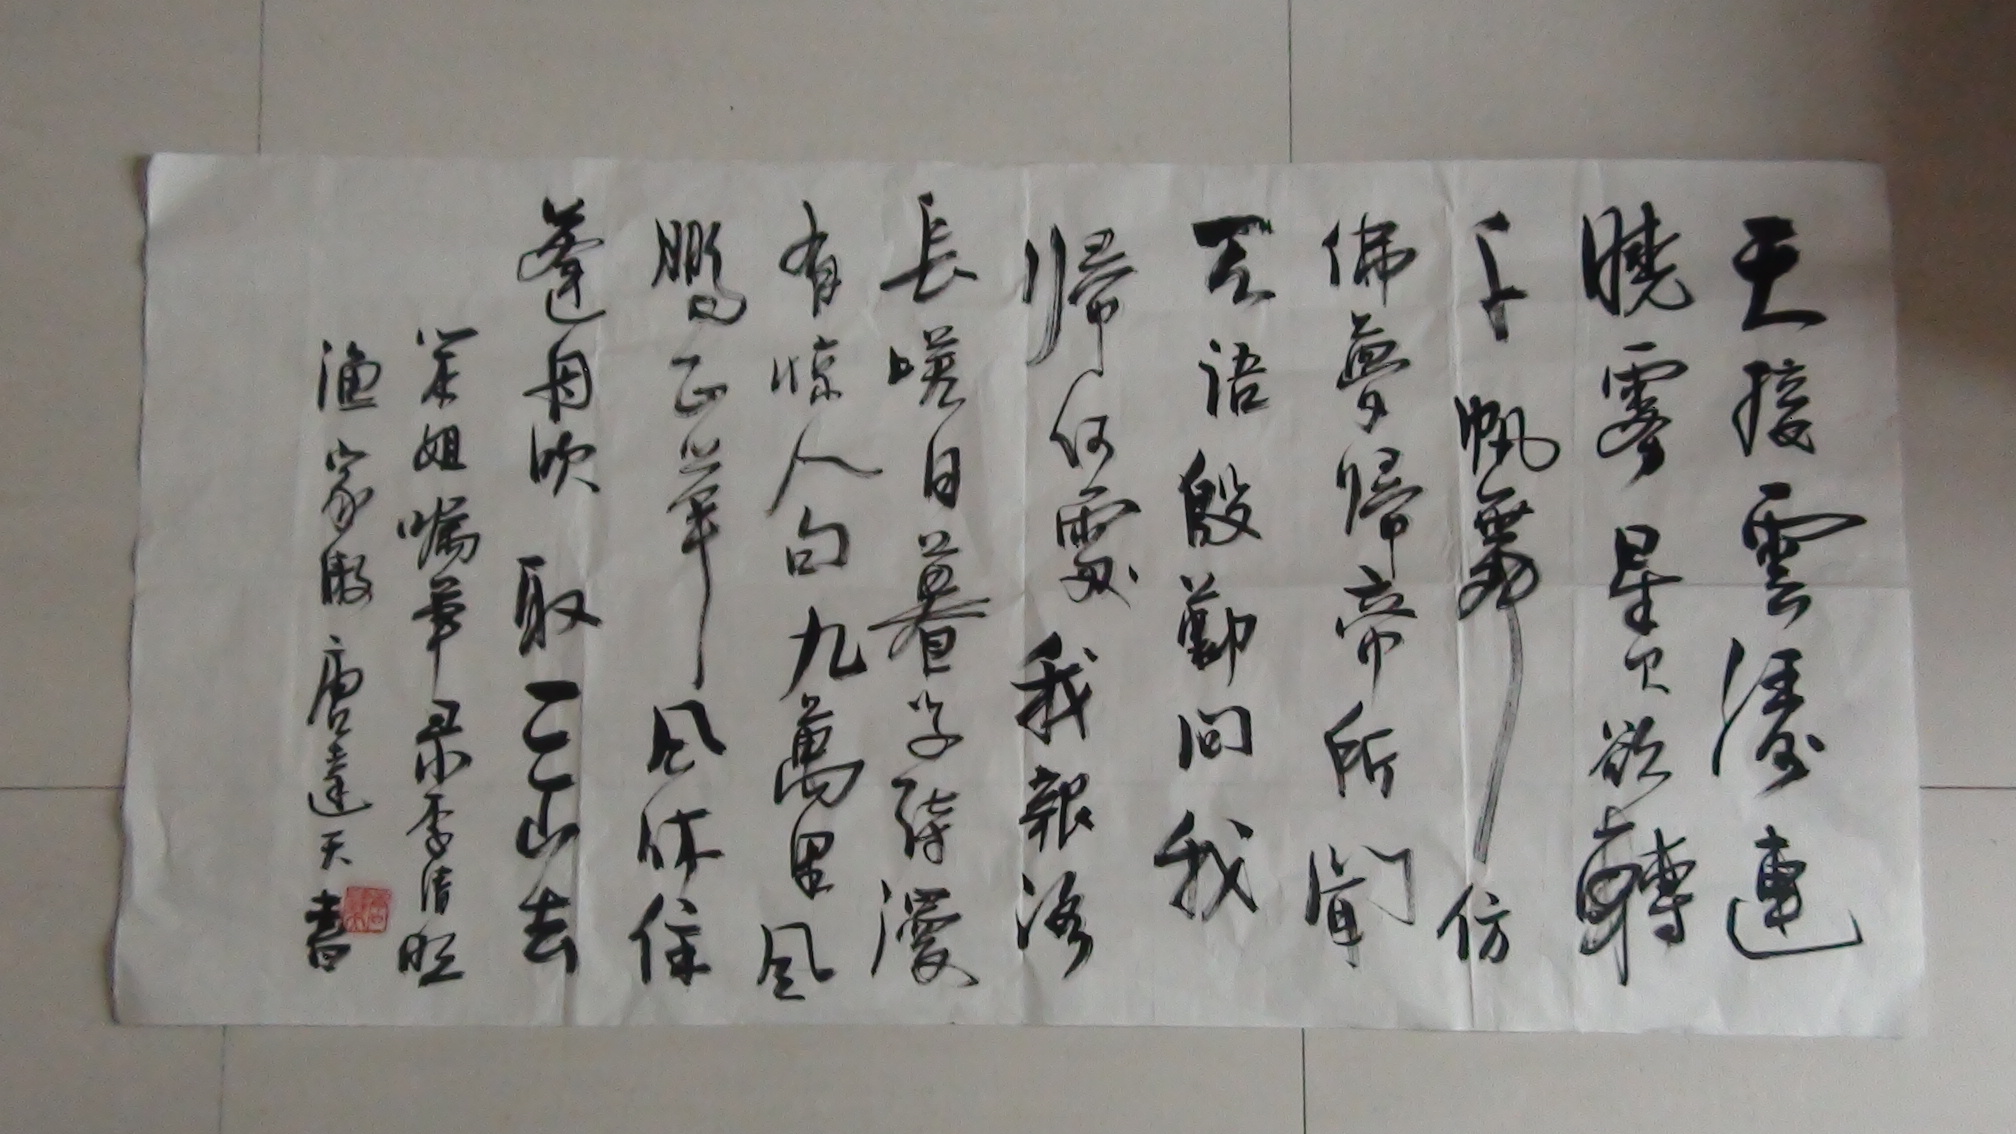 天接雲濤連
曉霧星欲轉
千帆舞仿
佛夢歸帝所聞
天語殷勤問我
歸何處我報路
長嗟日暮学詩漫
有惊人句九萬里風
鵬正舉風休住
蓬舟吹取三山去
姐囑筆录李清照
渔家傲唐達天書